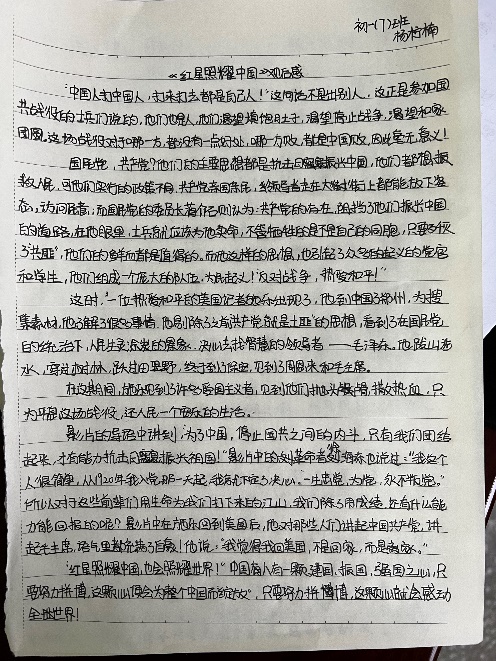 初一(7)班
杨柠楠
《红星照耀中国》观后感
“中国人打中国人,打来打去都是自己人!”这句话不是出别人,这正是参加国
共战役的士兵们说的,他们也是人,他们渴望填饱肚子,渴望停止战争,渴望和家
团圆。这场战役对于哪一方,都没有一点好处,哪一方败,都是中国败,因此毫无意义!
国民党,共产党?他们的主要思想都是抗击日寇振兴中国,他们都想振
救人民,可他们实行的政策不同,共产党亲国亲民,给领导者走在大街上都能放下姿
态,访问民意;而国民党的委员长蒋介石则认为:共产党的存在,阻挡了他们振兴中国
的道路,在他眼里,士兵们应该为他卖命,不管牺牲的是不是自己的同胞,只要歼灭
了“共匪”,他们的鲜血都是值得的。而他这样的思想,也引起了众多的起义的党客
和学生,他们组成一个庞大的队伍,为民起义!反对战争,热爱和平!”
这时,一位热爱和平的美国记者埃德加出现了,他到中国郑州,为搜
集素材,他了解了很多事情,他剔除了之前共产党就是土匪”的思想,看到了在国民党
的统治下,人民生灵涂炭的景象,决心去找智慧的领导者——毛泽东。他跋山涉
水,穿过树林,跃过田野,终于到了保安,见到了周恩来和毛主席。
在这期间,他也见到了许多爱国主义者,见到他们抛头颅,撒热血,只
为平息这场战役,还人民一个安乐的生活。
影片的导语中讲到,为了中国,停止国共之间的内斗,只有我们团结
起来,才有能力抗击日寇振兴祖国!”影片中的刘革命者将棉袄也说过:“我这个
人很简单,从1920年我入党那一天起,我就下定了决心,一生忠党,为党,永不叛党。”
所以对于这些前辈们用生命为我们打下来的江山,我们除了用成绩,还有什么能
力能回报的呢?影片中在施乐回到美国后,他对那些人们讲起中国共产党,讲
起毛主席,语气里都充满了自豪!他说:“我觉得我回美国,不是回家,而是离家。”
“红星照耀中国,也会照耀世界!”中国每人有一颗建国、振国、强国之心,只
要努力拼搏,这颗心便会为整个中国而绽放”,只要努力拼搏,这颗心就会感动
全世界!